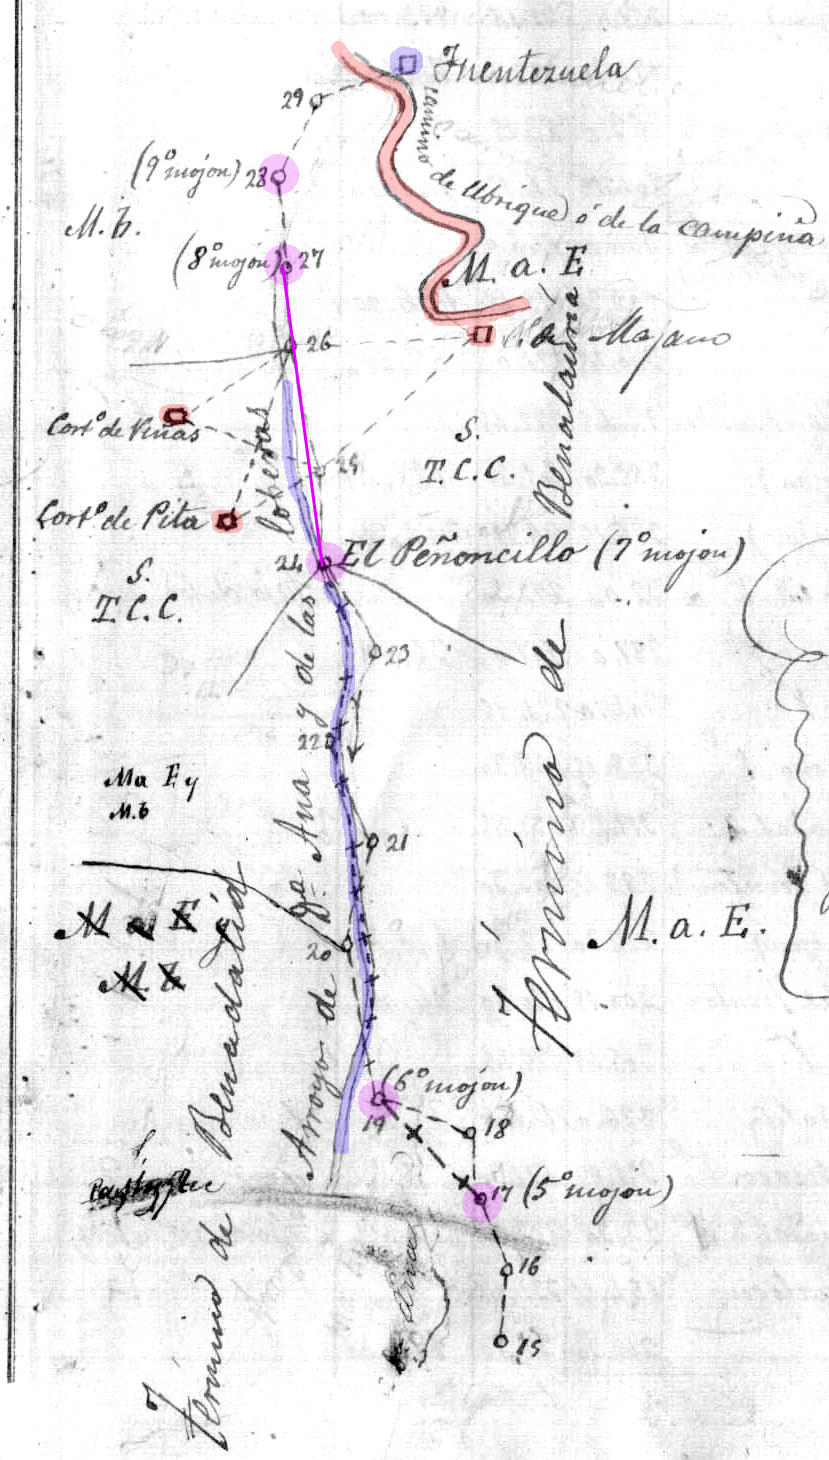 Fuentezuela
29
Camino de Ubrique ó de la campiña
(9º mojón) 28
M. b.
(8º mojón) 27
M. a. E
26
Majano
Cortº de Viñas
S.
T.C.C.
25
Cortº de Pita
24 El Peñoncillo (7º mojon)
S.
T.C.C.
23
22
Ma E y
M.b
21
M a E y
M. b
20
M. a. E.
Arroyo de Dª Ana y de las loberas
Término de Benalauria
Término de Benadalid
(6º mojón)
19
18
17 (5º mojón)
16
15